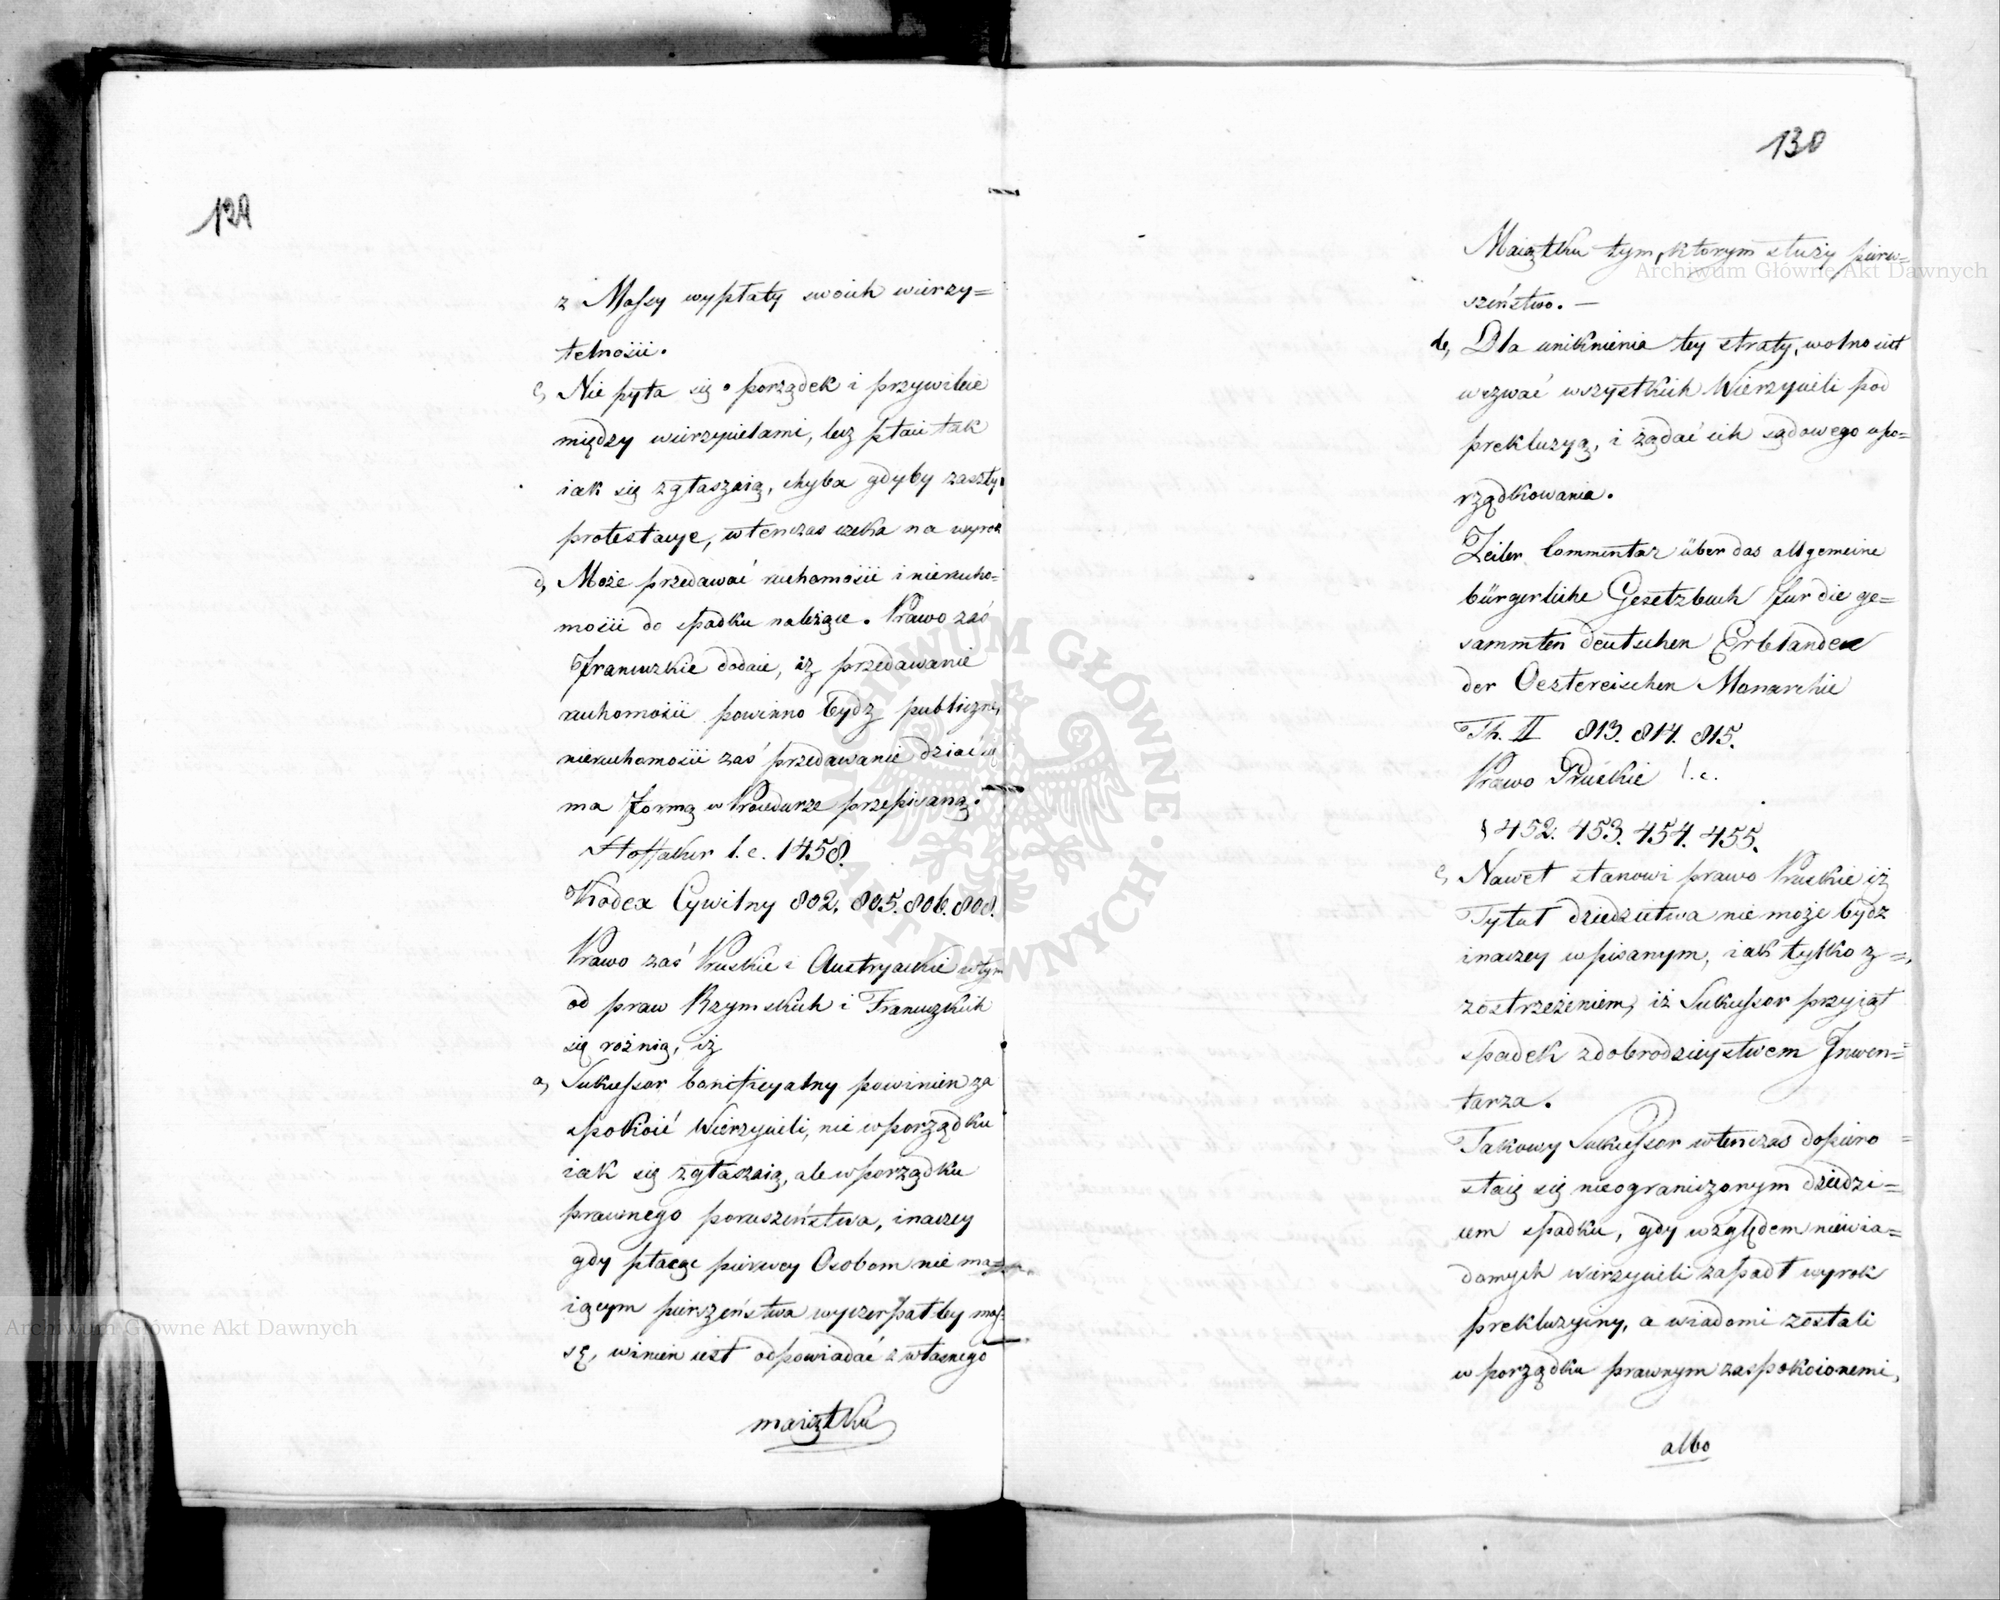 129
z Massy wypłaty swoich wierzy=
telności.
c, Nie pyta się o porządek i przywileie
między wierzycielami, lecz płaci tak
iak się zgłaszaią, chyba gdyby zaszły
protestacye, wtenczas czeka na wyrok
d, Może przedawać ruchomości i nierucho=
mości do spadku należące. Prawo zaś
Francuzkie dodaie, iż przedawanie
ruchomości powinno bydź publiczne,
nieruchomości zaś przedawanie dziać się
ma formą w Procedurze przepisaną.
Hoffaker l. c. 1458.
Kodex Cywilny 802. 805. 806. 808.
Prawo zaś Pruskie i Austryackie w tym
od praw Rzymskich i Francuzkich
się rożnią, iż
a, Sukcessor beneficyalny powinien za
spokoić Wierzycieli, nie w porządku
iak się zgłaszaią, ale w porządku
prawnego pierwszeństwa, inaczey
gdy płacąc pierwey Osobom nie ma=
iącym pierszeństwa wyczerpałby mas=
sę, winien iest odpowiadać z własnego
maiątku
130
Maiątku tym, ktorym służy pierw=
szeństwo. —
b, Dla uniknienia tey straty, wolno iest
wezwać wszystkich Wierzycieli pod
prekluzyą, i żądać ich sądowego upo=
rządkowania.
Zeiler Commentar über das allgemeine
bürgerliche Gesetzbuch für die ge=
sammten deutschen Erblanden
der Oestereischen Monarchie
Th. II 813. 814. 815.
Prawo Pruskie l. c.
§ 452. 453. 454. 455.
c, Nawet stanowi prawo Pruskie iż
Tytuł dziedzictwa nie może bydź
inaczey wpisanym, iak tylko z=
zostrzeżeniem, iż Sukcessor przyiął
spadek z dobrodzieystwem Inwen=
tarza.
Takowy Sukcessor wtenczas dopiero
staie się nieograniczonym dziedzi=
cem spadku, gdy względem niewia=
domych wierzycieli zapadł wyrok
prekluzyiny, a wiadomi zostali
w porządku prawnym zaspokoionemi,
albo
Archiwum Główne Akt Dawnych
Archiwum Główne Akt Dawnych
ARCHIWUM GŁÓWNE · AKT DAWNYCH ·